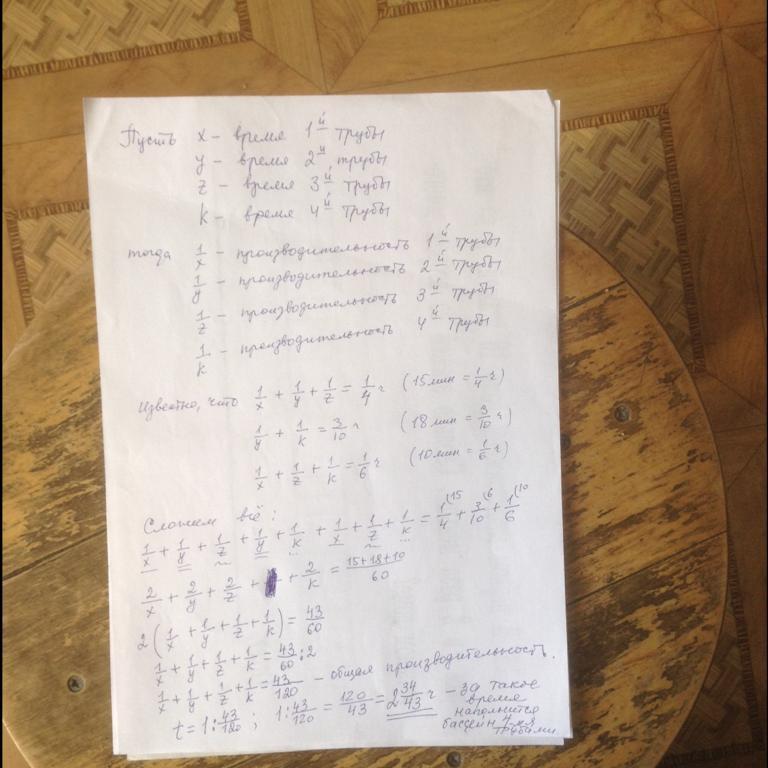 Пусть x – время 1й трубы
y – время 2й трубы
z – время 3й трубы
k – время 4й трубы
тогда 1/x – производительность 1й трубы
1/y – производительность 2й трубы
1/z – производительность 3й трубы
1/k – производительность 4й трубы
Известно, что 1/x + 1/y + 1/z = 1/4 ч (15 мин = 1/4 ч)
1/y + 1/k = 3/10 ч (18 мин = 3/10 ч)
1/x + 1/z + 1/k = 1/6 ч (10 мин = 1/6 ч)
Сложем всё:
1/x + 1/y + 1/z + 1/y + 1/k + 1/x + 1/z + 1/k = 1/4 (15 + 3/10 (6 + 1/6 (10
2/x + 2/y + 2/z + + 2/k = (15+18+10)/60
2 (1/x + 1/y + 1/z + 1/k) = 43/60
1/x + 1/y + 1/z + 1/k = 43/60 : 2
1/x + 1/y + 1/z + 1/k = 43/120 – общая производительность.
t = 1 : 43/120 ; 1 : 43/120 = 120/43 = 2 34/43 ч – за такое
время
наполнится
бассейн 4-мя
трубами.